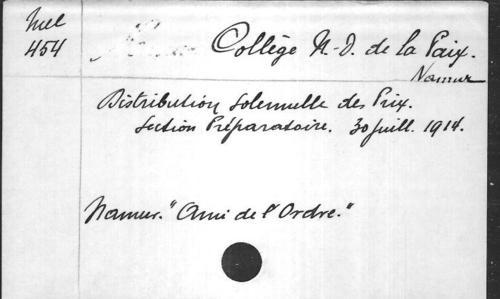 Mel
454
Collège N.-D. de la Paix.
Namur
Distribution solennelle des Prix.
Section Préparatoire. 30 juill. 1914.
Namur. "Ami de l'Ordre."